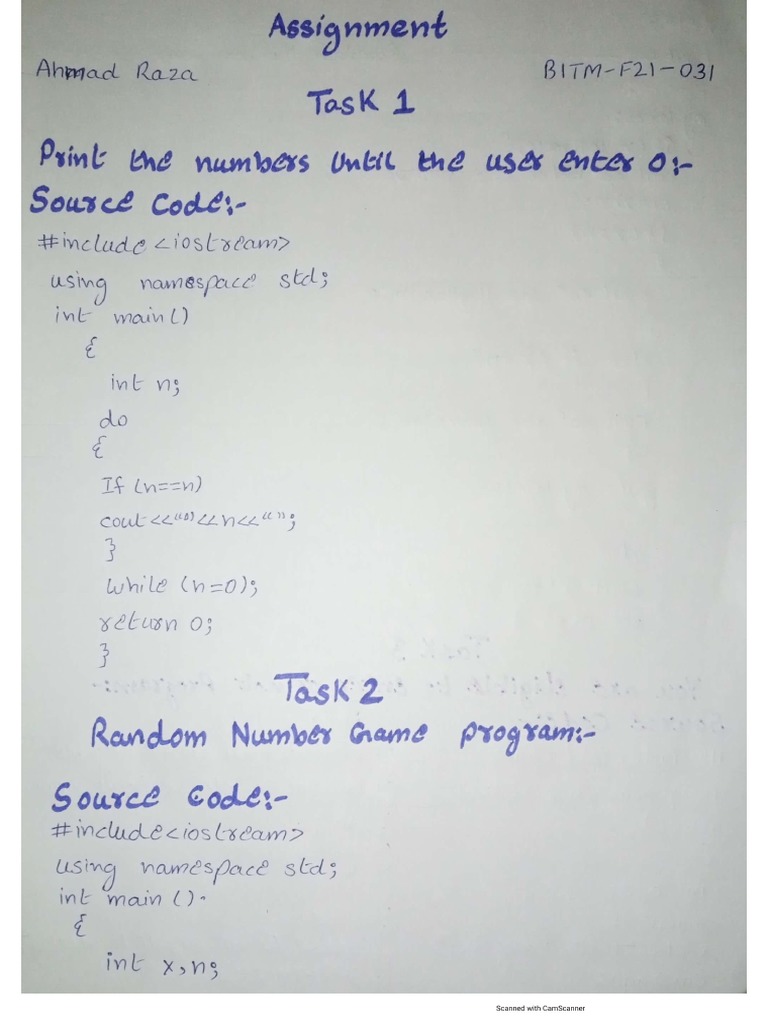 Assignment
Ahmad Raza BITM-F21-031
Task 1
Print the numbers Until the user enter 0:-
Source Code:-
#include <iostream>
using namespace std;
int main()
{
int n;
do
{
If (n==n)
cout<<"0"<<n<<" ";
}
while (n=0);
return 0;
}
Task 2
Random Number Game program:-
Source Code:-
#include<iostream>
using namespace std;
int main ().
{
int x,n;
Scanned with CamScanner